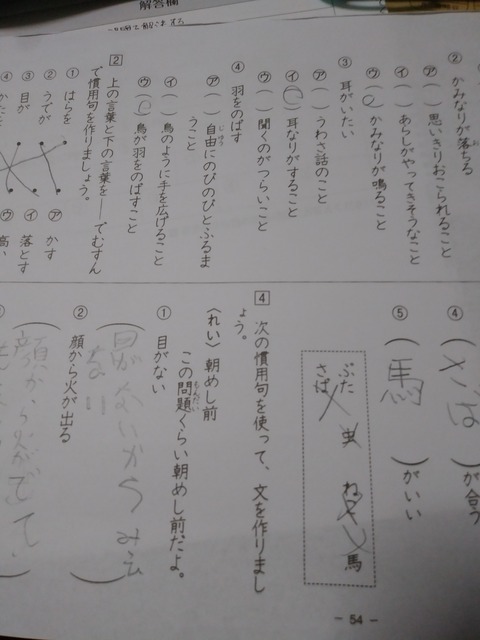 解答欄
② かみなりが落ちる
㋐ ( ) 思いきりおこられること
㋑ ( ) あらしがやってきそうなこと
㋒ (○) かみなりが鳴ること
③ 耳がいたい
㋐ ( ) うわさ話のこと
㋑ (○) 耳なりがすること
㋒ ( ) 聞くのがつらいこと
④ 羽をのばす
㋐ ( ) 自由にのびのびとふるまうこと
㋑ ( ) 鳥のように手を広げること
㋒ (○) 鳥が羽をのばすこと
2 上の言葉と下の言葉を――でむすんで慣用句を作りましょう。
① はらを
② うでが
③ 目が
㋐ かす
㋑ 落とす
㋒ 高い
④ (さば)が合う
⑤ (馬)がいい
ぶた 虫 ねこ 馬
さば
4 次の慣用句を使って、文を作りましょう。
〈れい〉 朝めし前
この問題くらい朝めし前だよ。
① 目がない
目がないからみえない
② 顔から火が出る
顔から火がでて
- 54 -